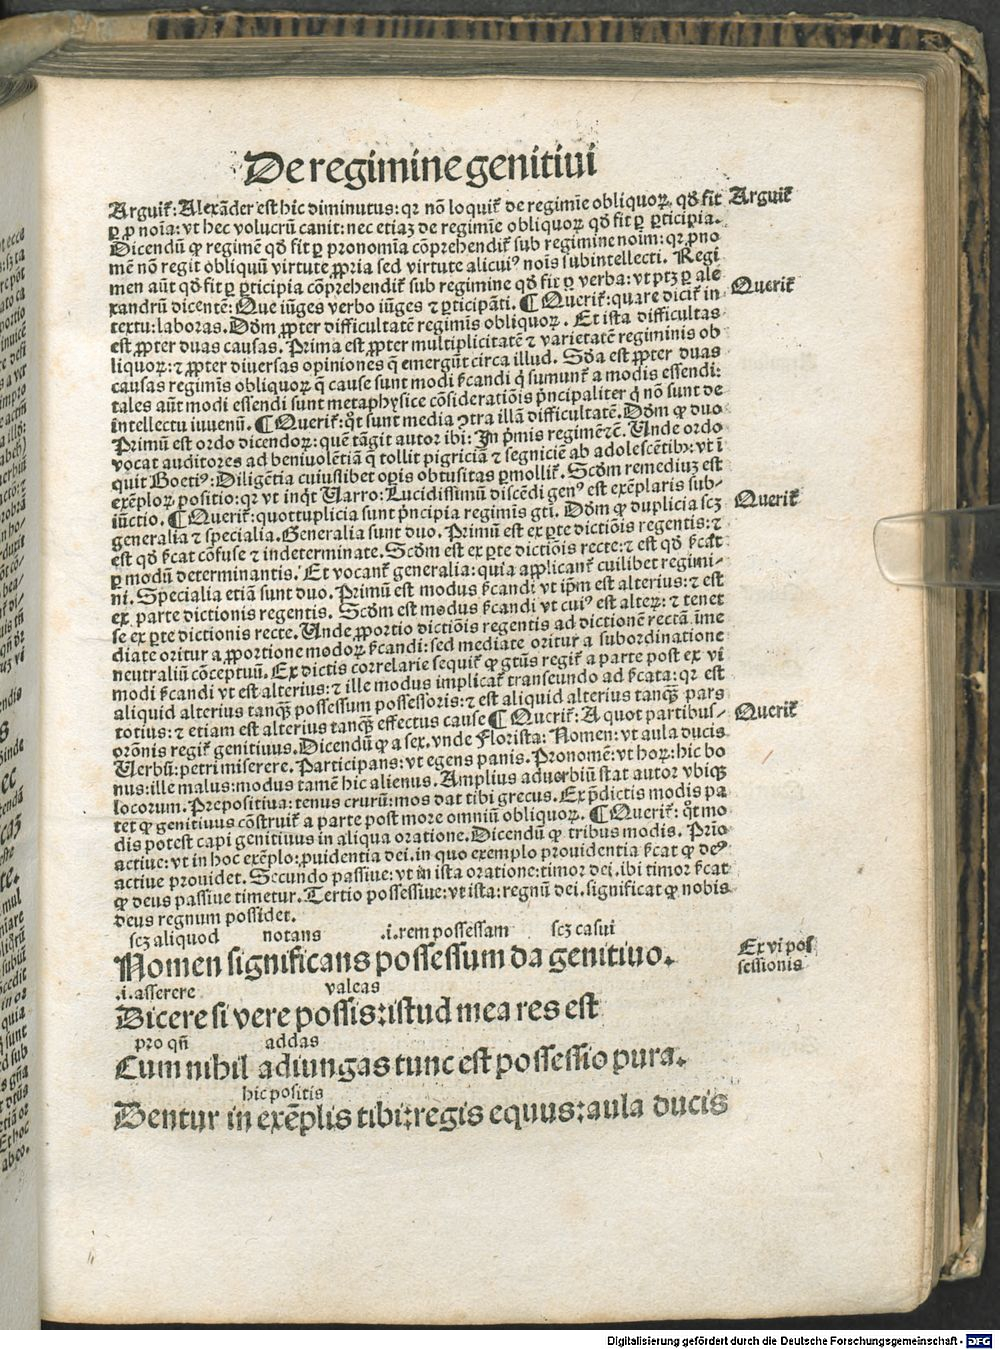 De regimine genitiui
Arguit̃: Alexãder est hic diminutus: qr nõ loquit̃ de regimĩe obliquoꝝ. qď fit Arguit̃
ꝑ ꝓ noĩa: vt hec volucrũ canit: nec etiaꝫ de regimĩe obliquoꝝ qď fit ꝑ ꝑticipia.
Dicendũ ꝙ regimẽ qď fit ꝑ pronomĩa cõprehendit̃ sub regimine noĩm: qr ꝓno
mẽ nõ regit obliquũ virtute ꝓpria sed virtute alicuiꝰ noĩs subintellecti. Regi
men aũt qď fit ꝑ ꝑticipia cõprehendit̃ sub regimine qď fit ꝑ verba: vt ptꝫ ꝑ ale
xandrũ dicentẽ: Que iũges verbo iũges ⁊ ꝑticipãti. ¶ Querit̃: quare dicit̃ in Querit̃
textu: laboras. Dõm ꝓpter difficultatẽ regimĩs obliquoꝝ. Et ista difficultas
est ꝓpter duas causas. Prima est ꝓpter multiplicitatẽ ⁊ varietatẽ regiminis ob
liquoꝝ: ⁊ ꝓpter diuersas opiniones q̃ emergũt circa illud. Scďa est ꝓpter duas
causas regimĩs obliquoꝝ q̃ cause sunt modi s̃candi q̃ sumunt̃ a modis essendi:
tales aũt modi essendi sunt metaphysice cõsideratiõis p̃ncipaliter q̃ nõ sunt de
intellectu iuuenũ. ¶ Querit̃: q̃t sunt media ↄtra illã difficultatẽ. Dõm ꝙ duo
Primũ est ordo dicendoꝝ: quẽ tãgit autor ibi: In p̃mis regimẽ ⁊c̃. Unde ordo
vocat auditores ad beniuolẽtiã q̃ tollit pigriciã ⁊ segniciẽ ab adolescẽtibꝫ: vt ĩ
quit Boetiꝰ: Diligẽtia cuiuslibet opĩs obtusitas ꝑmollit̃. Scďm remediuꝫ est
exẽploꝝ positio: qr vt inq̃t Uarro: Lucidissimũ discẽdi genꝰ est exẽplaris sub⸗
iũctio. ¶ Querit̃: quottuplicia sunt p̃ncipia regimĩs gtĩ. Dõm ꝙ duplicia scꝫ Querit̃
generalia ⁊ specialia. Generalia sunt duo. Primũ est ex ꝑte dictiõis regentis: ⁊
est qď s̃cat cõfuse ⁊ indeterminate. Scďm est ex ꝑte dictiõis recte: ⁊ est qď s̃cat
ꝑ modũ determinantis. Et vocant̃ generalia: quia applicant̃ cuilibet regimi⸗
ni. Specialia etiã sunt duo. Primũ est modus s̃candi vt ip̃m est alterius: ⁊ est
ex parte dictionis regentis. Scďm est modus s̃candi vt cuiꝰ est alteꝝ: ⁊ tenet
se ex ꝑte dictionis recte. Unde ꝓportio dictiõis regentis ad dictionẽ rectã ĩme
diate oritur a ꝓportione modoꝝ s̃candi: sed mediate oritur a subordinatione
neutraliũ cõceptuũ. Ex dictis correlarie sequit̃ ꝙ gtũs regit̃ a parte post ex vi
modi s̃candi vt est alterius: ⁊ ille modus implicat̃ transeundo ad s̃cata: qr est
aliquid alterius tanqꝫ possessum possessoris: ⁊ est aliquid alterius tanqꝫ pars
totius: ⁊ etiam est alterius tanqꝫ effectus cause ¶ Querit̃: A quot partibus⸗ Querit̃
orõnis regit̃ genitiuus. Dicendũ ꝙ a sex. vnde Florista: Nomen: vt aula ducis
Uerbũ: petri miserere. Participans: vt egens panis. Pronomẽ: vt hoꝝ: hic bo
nus: ille malus: modus tamẽ hic alienus. Amplius aduerbiũ stat autor vbiqꝫ
locorum. Prepositiua: tenus crurũ: mos dat tibi grecus. Ex p̃dictis modis pa
tet ꝙ genitiuus cõstruit̃ a parte post more omniũ obliquoꝝ. ¶ Querit̃: q̃t mo
dis potest capi genitiuus in aliqua oratione. Dicendũ ꝙ tribus modis. Prĩo
actiue: vt in hoc exẽplo: ꝓuidentia dei. in quo exemplo prouidentia s̃cat ꝙ deꝰ
actiue prouidet. Secundo passiue: vt in ista oratione: timor dei. ibi timor s̃cat
ꝙ deus passiue timetur. Tertio possessiue: vt ista: regnũ dei. significat ꝙ nobis
deus regnum possidet.
scꝫ aliquod notans .i. rem possessam scꝫ casui
Nomen significans possessum da genitiuo. Ex vi pos
sessionis
.i. asserere valeas
Dicere si vere possis: istud mea res est
pro qñ addas
Cum nihil adiungas tunc est possessio pura.
hic positis
Dentur in exẽplis tibi: regis equus: aula ducis
Digitalisierung gefördert durch die Deutsche Forschungsgemeinschaft - DFG